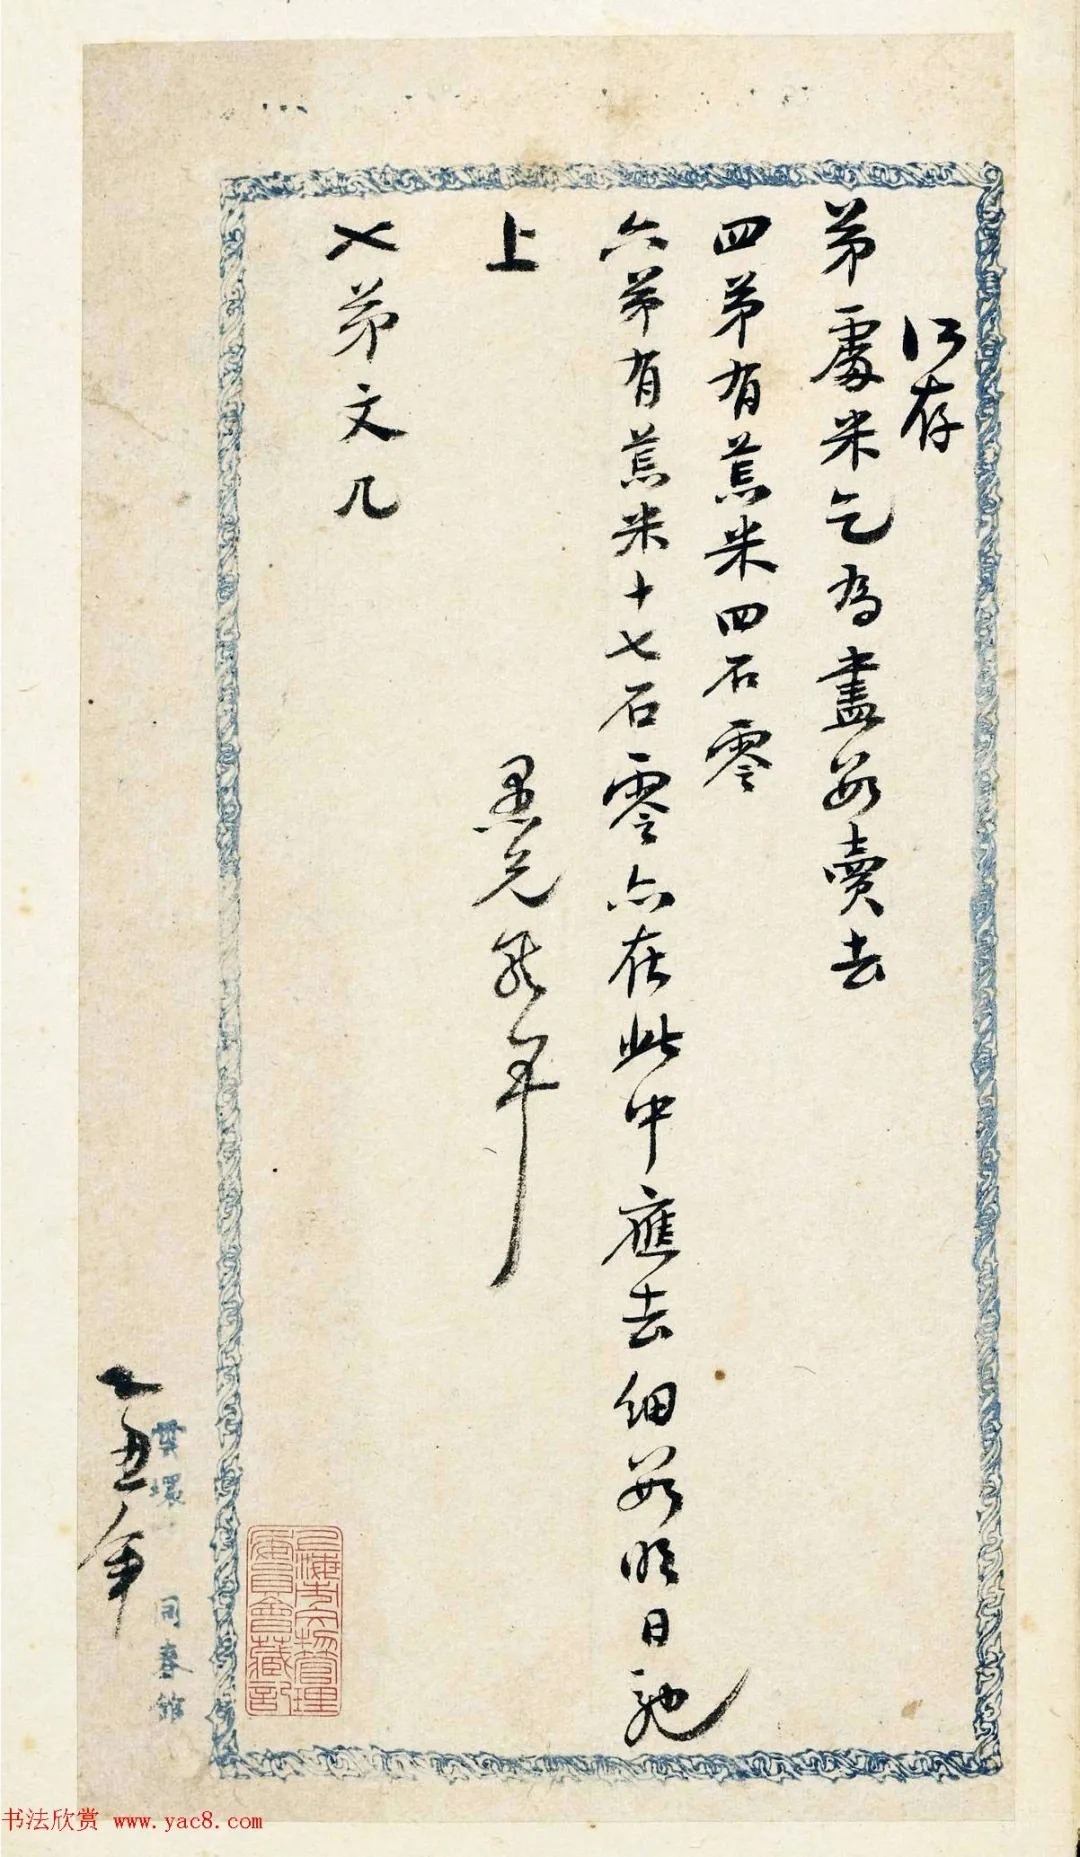 所存
弟處米乞為盡數賣去
四弟有荒米四石零
六弟有荒米十七石零亦在此中應去細數明日馳
上
愚兄能年
七弟文几
乙丑年
雲環
同春館
上海市文物管理
委員會藏記
书法欣赏 www.yac8.com